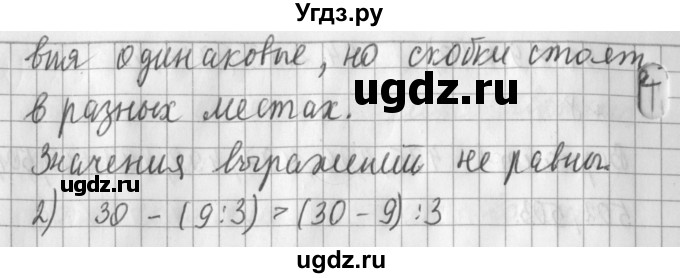 Угдз.ру
вия одинаковые, но скобки стоят
в разных местах.
ugdz.ru
Значения выражений не равны.
ugdz.ru
2) 30 - (9:3) > (30 - 9) : 3
ugdz.ru
©ugdz.ru